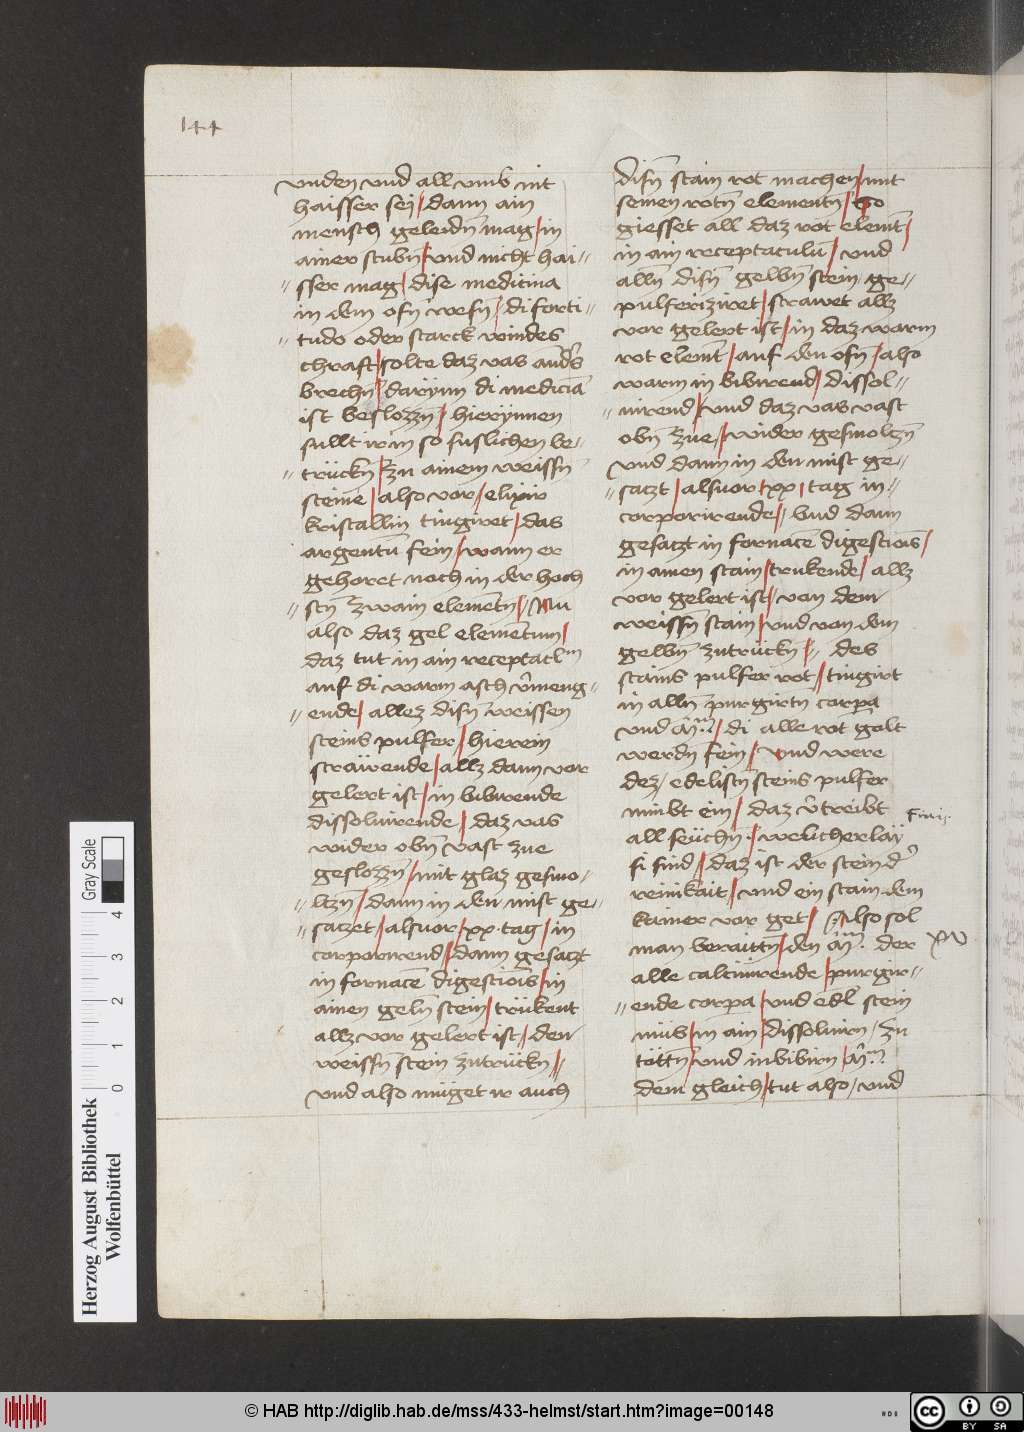 144
vnden vnd all vmb nit
haisser sei / dann ain
mensch geleidn̄ mag / in
ainer stubn̄ / vnd nicht hai-//
// sser mag / dise medicina
in dem ofn̄ wesn̄ / di forti-
// tudo oder starck windes
chraft / solte daz vas
brechn̄ / darÿnn di medicīa
ist beslozzn̄ / hierÿnnen
sullt ir in so fuslichen be-//
// trückn̄ / zu ainem weissn̄
steine / also vor / elixir
kristallin tingiret / das
argentū fein / wann er
gehoret noch in der hoch
// stn̄ zwain elemētn̄ // Nu
also daz gel elementum /
daz tut in ain receptaclm
auf di warm asch v̄meng-//
// ende / allez disn̄ weissen
steins pulfer / hierein
sträwende / allz dann vor
gelert ist / in bibirende
dissoluirende / daz vas
vnder obn̄ vast zue
geslozzn̄ / mit glaz gesmo-//
// ltzn̄ / dann in den mist ge-//
// satzet / alsuor / xx · tag / in
corporirend / dann gesatzt
in fornace digestiois / in
ainen geln̄ stein / trükent
allz vor gelert ist / den
weissn̄ stein zutrückn̄ //
vnd also müget ir auch
disn̄ stain rot machen / mit
seinen rotn̄ elementn̄ / So
giesset all daz rot elemt /
in ain receptaculū / vnd
alln̄ disn̄ gelbn̄ stein ge-//
pulferiziret / strawet allz
vor gelert ist / in daz warm
rot elemt / auf den ofn̄ / also
warm in bibirend / dissol-//
// uirend / vnd daz vas vast
obn̄ zue / wider gesmoltzn̄
vnd dann in den mist ge-//
// satzt / alsuor / xx / tag in-//
corporirende // Vnd dann
gesatzt in fornace digestiois /
in ainen stain / trukende / allz
vor gelert ist / von dem
weissn̄ stain / vnd von dem
gelbn̄ zutrückn̄ // des
stains pulfer rot / tingirt
in alln̄ purgirtn corpa
vnd / di alle rot golt
werdn̄ fein / vnd were
dez / edelistn̄ steins pulfer
nimbt ein / daz v̄treibt
all seüchn̄ / welicherläÿ
si sind / daz ist der stein
reinikait / vnd ein stain dem
kainer vor get / Also sol
man beraittn̄ den der
alle calcinirende / purgir-//
// ende corpa / vnd edl stein
müs / in ain / dissoluirn / zu
töttn̄ / vnd inbibirn /
dem gleich / tut also / vnd
Finis
xv
Herzog August Bibliothek
Wolfenbüttel
Gray Scale
0 1 2 3 4
© HAB http://diglib.hab.de/mss/433-helmst/start.htm?image=00148
cc BY SA